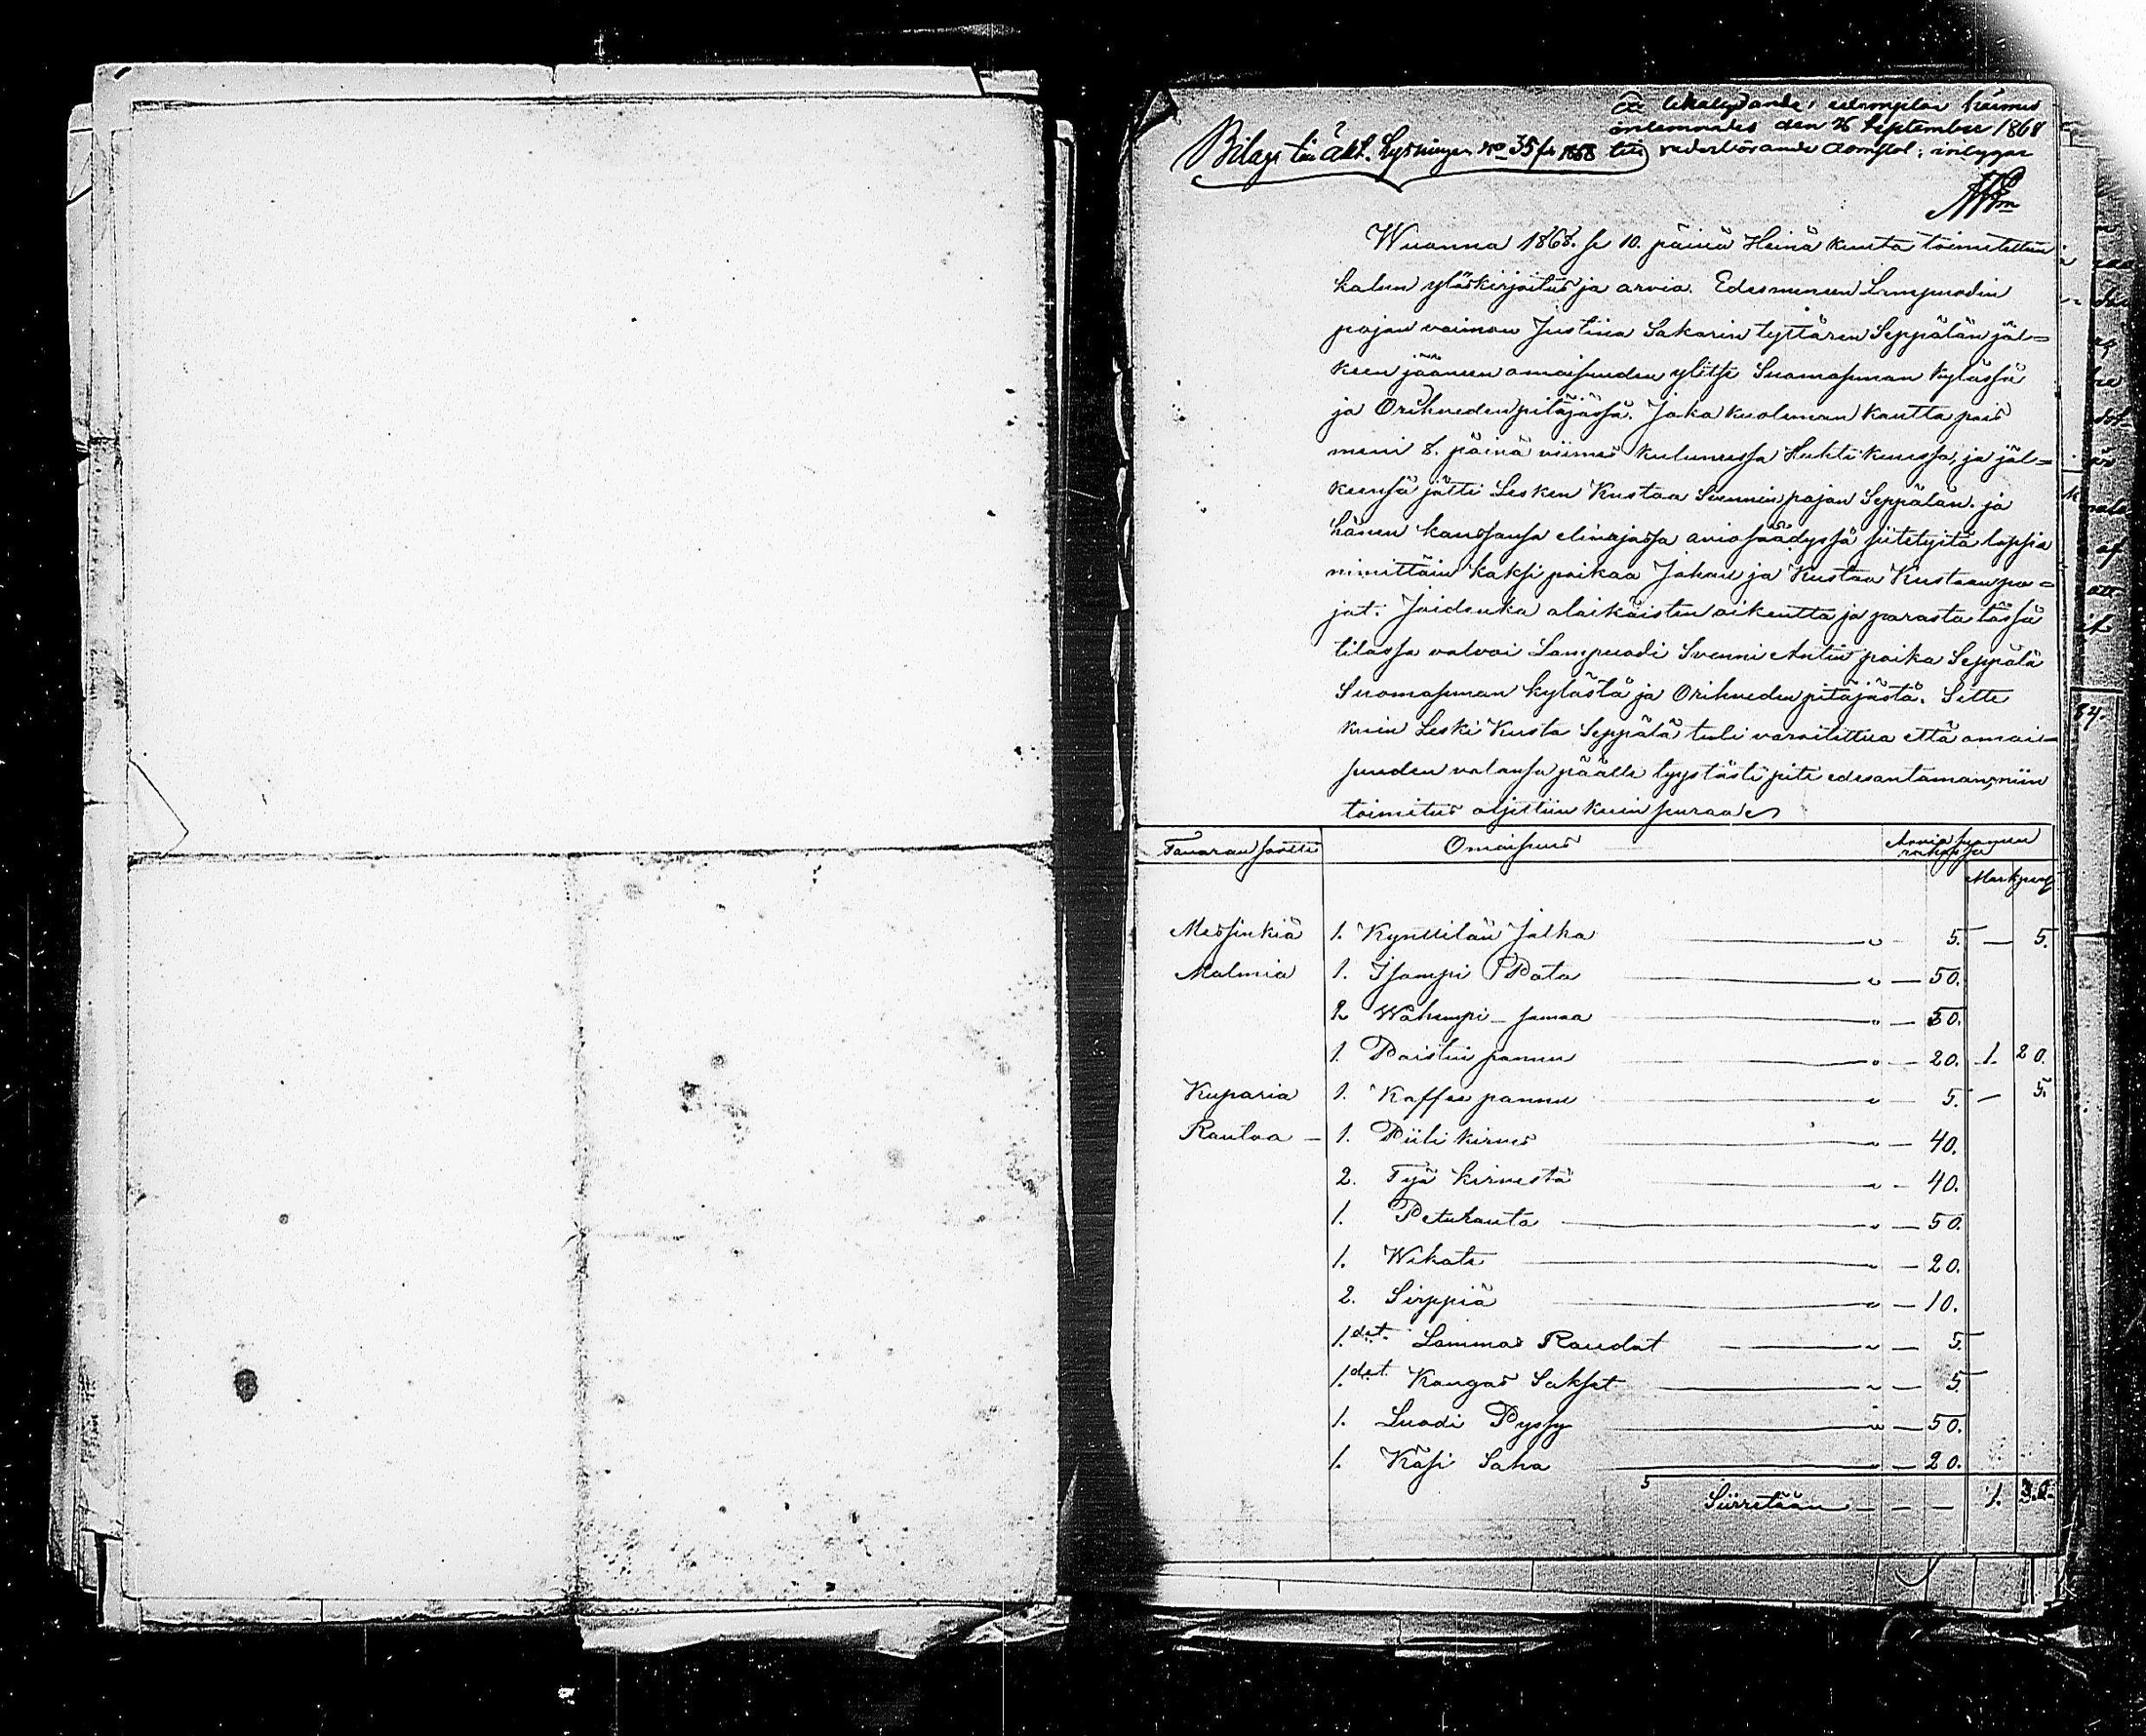 Ett likalydande exemplar härmed
inlemnades den 26 September 1868
till vederbörande Domstol; intygar
Bilaga till Akt. Lysningen No 35 för 1868
Wuonna 1868. se 10. päivä Heinä kuuta toimitettiin
kalun ylöskirjoitus ja arvio. Edesmeneen Lampuodin
pojan vaimon Justiina Sakarin tyttären Seppälän jäl=
keen jääneen omaisuuden ylitse Suomasuman kylässä
ja Orihveden pitäjässä. Joka kuoleman kautta pois
meni 8. päivä viimes kuluneessa Huhti kuussa, ja jäl=
keensä jätti Lesken Kustaa Svennin pojan Seppälän. ja
hänen kanssansa elinajassa aviosäädyssä siitetyitä lapsia
nimittäin kaksi poikaa Johan ja Kustaa Kustaan po=
jat. Joidenka alaikäisten oikeutta ja parasta tässä
tilassa valvoi Lampuodi Svenni Antin poika Seppälä
Suomasuman kylästä ja Orihveden pitäjästä. Sitte
kuin Leski Kusta Seppälä tuli varoitettua että omai-
suuden valansa päälle tyystästi piti edesantaman, niin
toimitus aljettiin kuin seuraa
Tavaran saatti Omaisuus Arvio suomen rahassa
Mark pen
Messinkiä 1. Kynttilän Jalka " 5. — 5.
Malmia 1. Isompi Pata " — 50.
2 Wähempi - samaa " — 50.
1. Paistin pannu " — 20. 1. 20.
Kuparia 1. Kaffee pannu " — 5. — 5.
Rautaa — 1. Piili kirves " — 40.
2. Työ kirvestä " - 40.
1. Petuhauta " — 50.
1. Wikate " — 20.
2. Sirppiä " — 10.
1. det. Lammas Raudat " — 5.
1. det. Kangas Sakset " — 5.
1. Luodi Pyssy " — 50.
1. Käsi Saha " — 20.
Siirretään — — — 1. 30.
84.